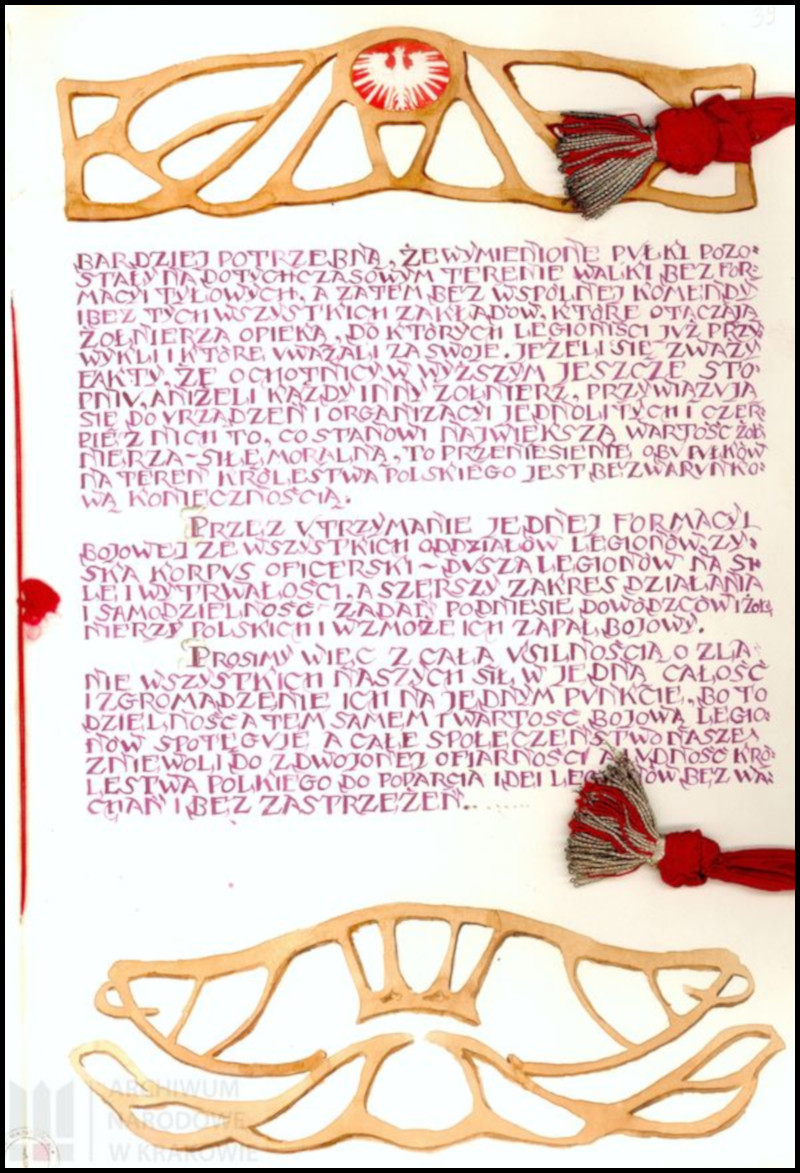 39
BARDZIEJ POTRZEBNĄ, ŻE WYMIENIONE PVŁKI POZO=
STAŁY NA DOTYCHCZASOWYM TERENIE WALKI BEZ FOR=
MACYI TYŁOWYCH, A ZATEM BEZ WSPÓLNEJ KOMENDY
I BEZ TYCH WSZYSTKICH ZAKŁADÓW, KTÓRE OTACZAJĄ
ŻOŁNIERZA OPIEKĄ, DO KTÓRYCH LEGIONIŚCI JVŻ PRZY
WYKLI I KTÓRE VWAŻALI ZA SWOJE. JEŻELI SIĘ ZWAŻY
FAKTY, ŻE OCHOTNICY W WYŻSZYM JESZCZE STO=
PNIV, ANIŻELI KAŻDY INNY ŻOŁNIERZ, PRZYWIĄZVJĄ
SIĘ DO VRZĄDZEŃ I ORGANIZACYI JEDNOLITYCH I CZER=
PIĘ Z NICH TO, CO STANOWI NAJWIĘKSZĄ WARTOŚĆ ŻOŁ
NIERZA ~ SIŁĘ MORALNĄ, TO PRZENIESIENIE OBV PVŁKÓW
NA TEREN KRÓLESTWA POLSKIEGO JEST BEZWARVNKO=
WĄ KONIECZNOŚCIĄ.
PRZEZ VTRZYMANIE JEDNEJ FORMACYI
BOJOWEJ ZE WSZYSTKICH ODDZIAŁÓW LEGIONÓW ZY=
SKA KORPVS OFICERSKI ~ DVSZA LEGIONÓW NA SI=
LE I WYTRWAŁOŚCI, A SZERSZY ZAKRES DZIAŁANIA
I SAMODZIELNOŚĆ ZADAŃ PODNIESIE DOWÓDZCÓW I ŻOŁ=
NIERZY POLSKICH I WZMOŻE ICH ZAPAŁ BOJOWY.
PROSIMY WIĘC Z CAŁĄ VSILNOŚCIĄ O ZLA=
NIE WSZYSTKICH NASZYCH SIŁ W JEDNĄ CAŁOŚĆ
I ZGROMADZENIE ICH NA JEDNYM PVNKCIE, BO TO
DZIELNOŚĆ A TEM SAMEM I WARTOŚĆ BOJOWĄ LEGIO=
NÓW SPOTĘGVJE A CAŁE SPOŁECZEŃSTWO NASZE
ZNIEWOLI DO ZDWOJONEJ OFIARNOŚCI LVDNOŚĆ KRÓ=
LESTWA POLKIEGO DO POPARCIA IDEI LEGIONÓW BEZ WA=
CHAŃ I BEZ ZASTRZEŻEŃ.
ARCHIWUM
NARODOWE
W KRAKOWIE